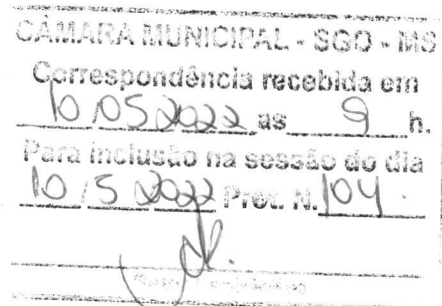 CÂMARA MUNICIPAL - SGO - MS
Correspondência recebida em
10/05/2022 as 9 h.
Para inclusão na sessão do dia
10/5/2022 Prot. N. 104